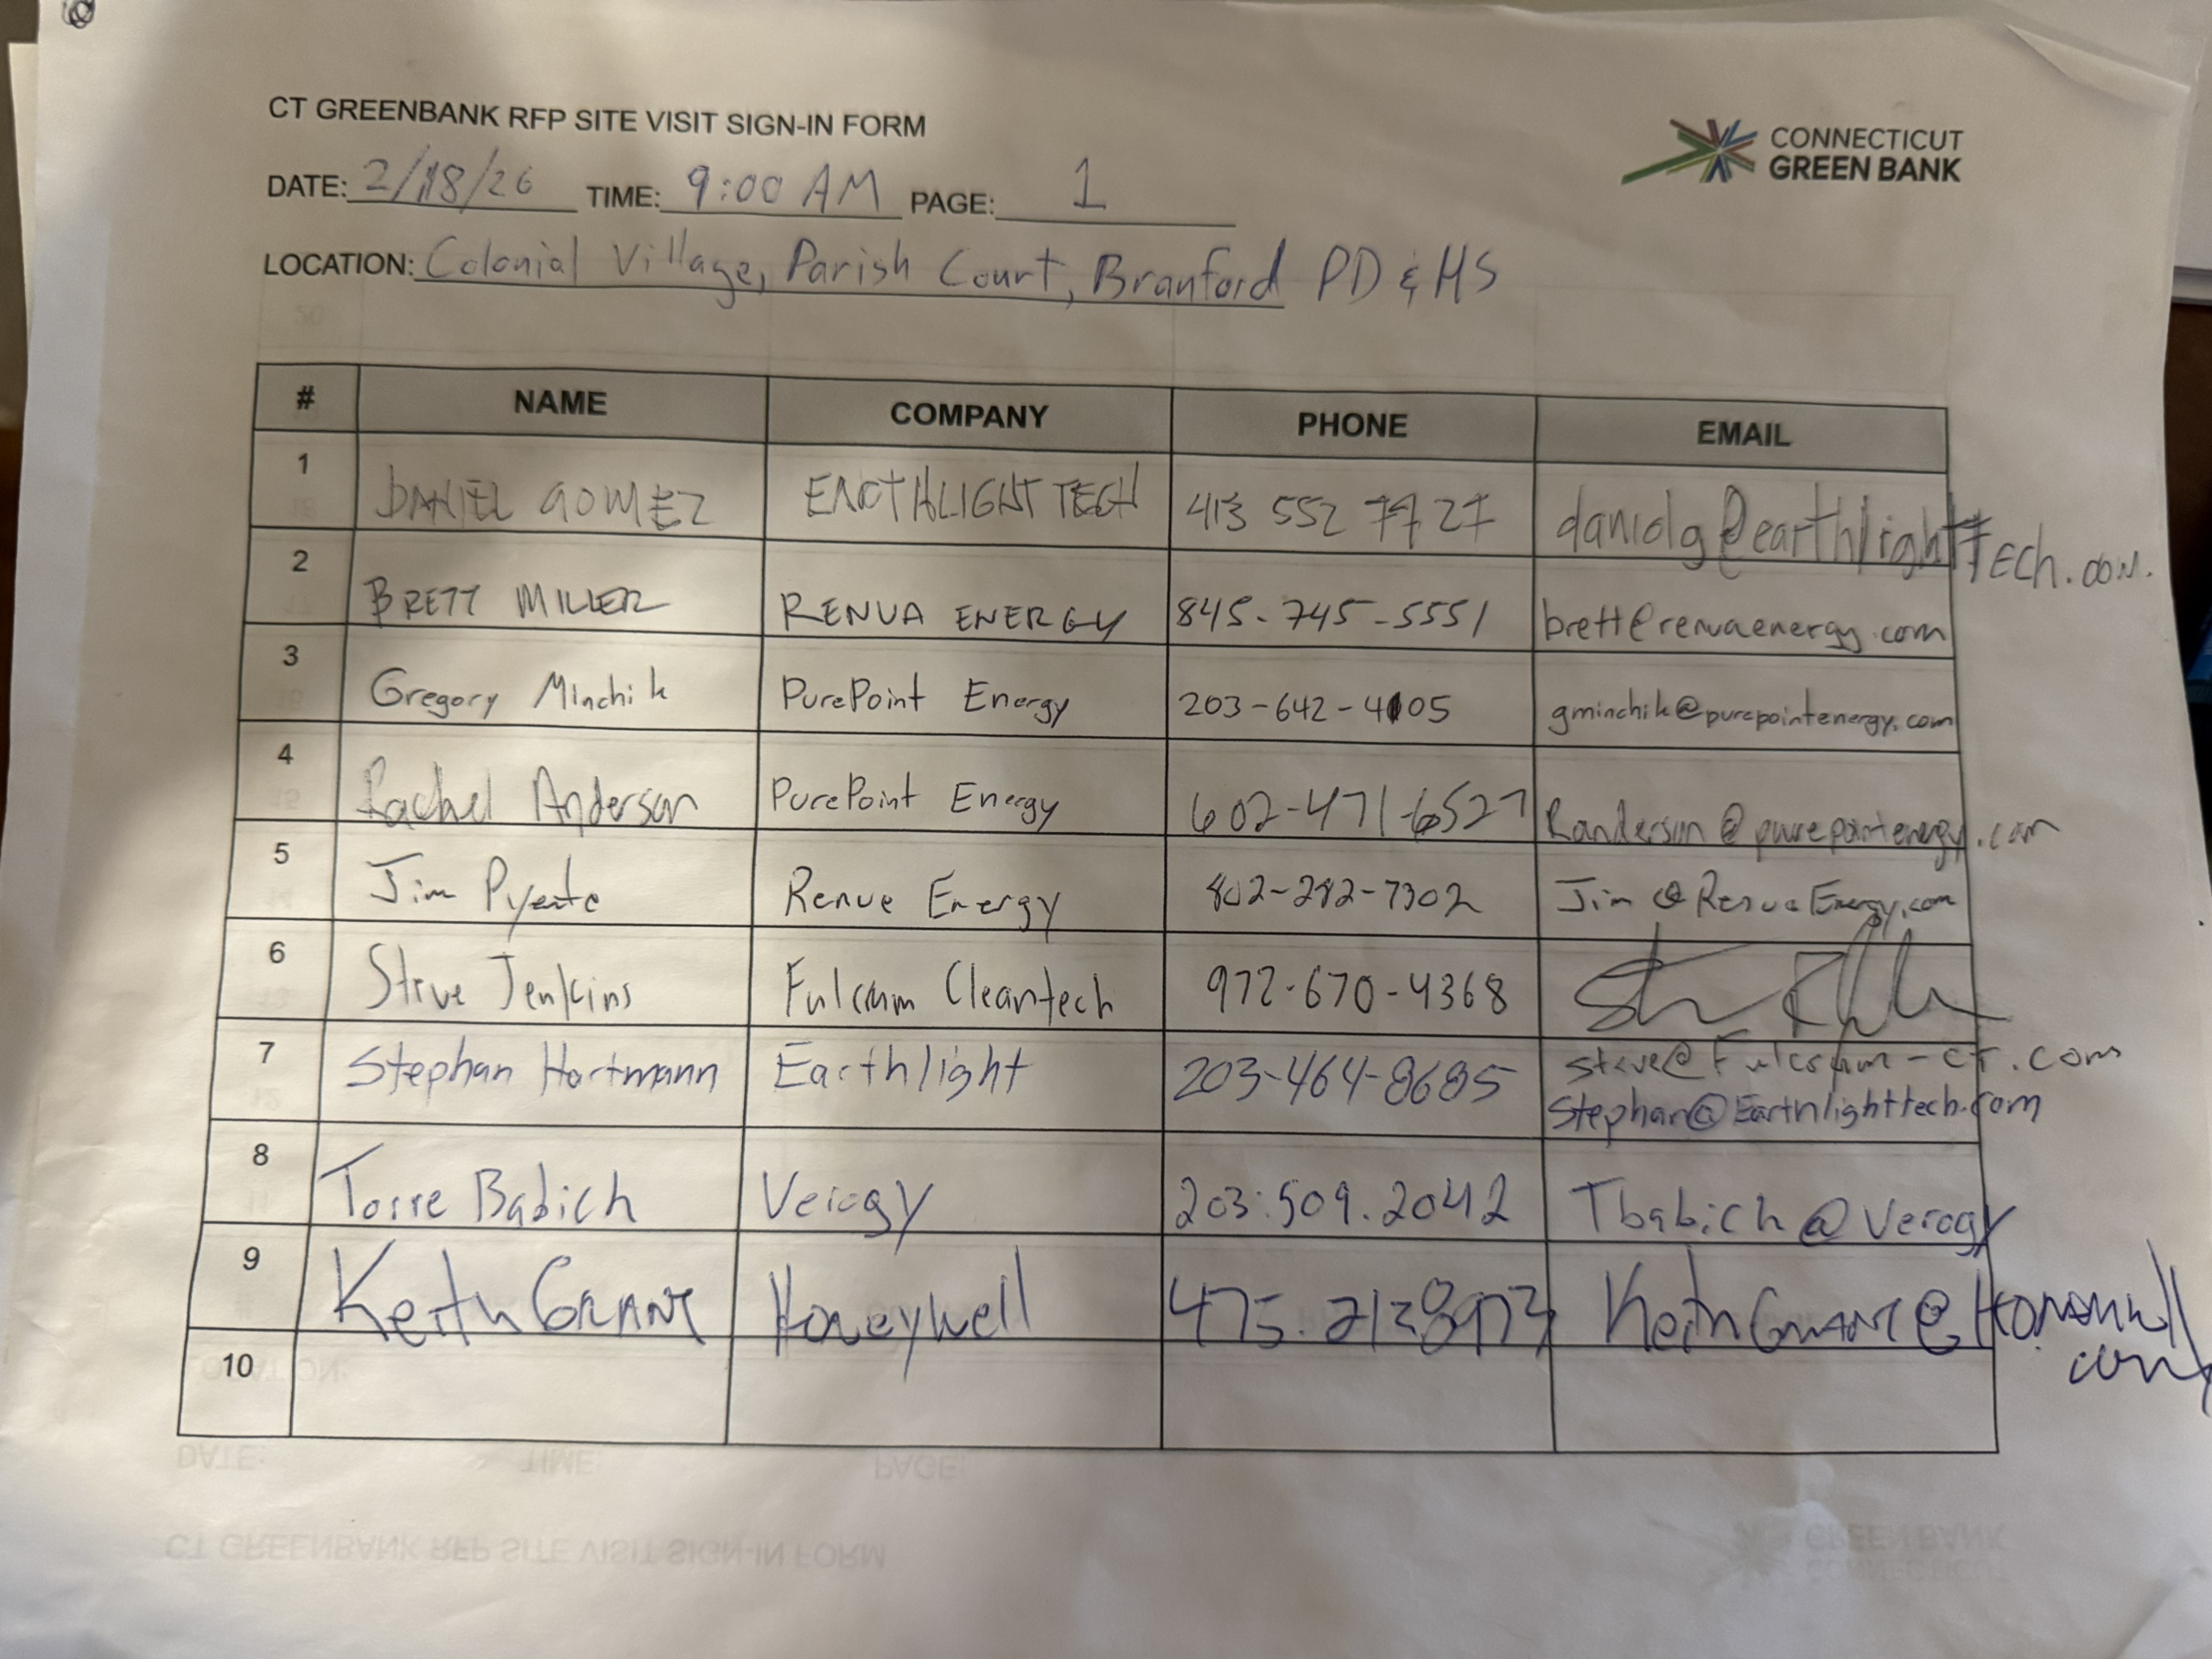 CT GREENBANK RFP SITE VISIT SIGN-IN FORM
CONNECTICUT
GREEN BANK
DATE: 2/18/26 TIME: 9:00 AM PAGE: 1
LOCATION: Colonial Village, Parish Court, Branford PD & HS
# NAME COMPANY PHONE EMAIL
1 DANIEL GOMEZ EARTHLIGHT TECH 413 552 7727 danielg@earthlighttech.com.
2 BRETT MILLER RENUA ENERGY 845-745-5551 brett@renuaenergy.com
3 Gregory Minchik PurePoint Energy 203-642-4105 gminchik@purepointenergy.com
4 Rachel Anderson PurePoint Energy 602-471-6527 Randerson@purepointenergy.com
5 Jim Renue Energy 802-282-7302 Jim@RenuaEnergy.com
6 Steve Jenkins Fulcrum Cleantech 972-670-4368
steve@Fulcrum-CT.com
7 Stephan Hartmann Earthlight 203-464-8685 Stephan@Earthlighttech.com
8 Torre Babich Verogy 203.509.2042 Tbabich@Verogy
9 Keith GRANT Honeywell KeithGRANT@Honeywell
.com
10